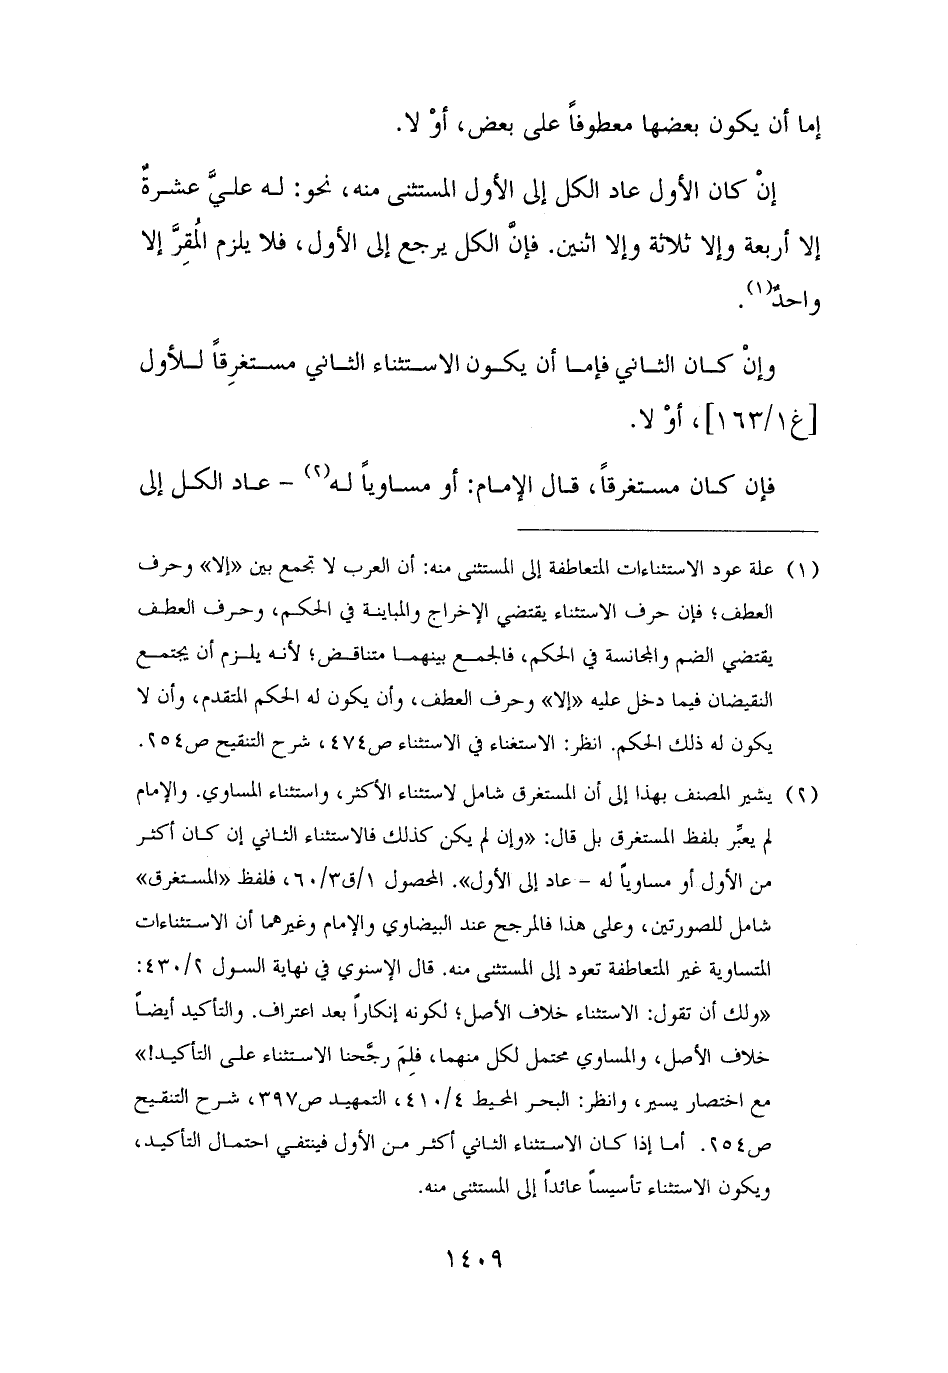 إما أن يكون بعضها معطوفاً على بعض، أوْ لا.
إنْ كان الأول عاد الكل إلى الأول المستثنى منه، نحو: له عليَّ عشرةٌ
إلا أربعة وإلا ثلاثة وإلا اثنين. فإنَّ الكل يرجع إلى الأول، فلا يلزم المُقِرَّ إلا
واحدٌ(١).
وإنْ كان الثاني فإما أن يكون الاستثناء الثاني مستغرِقاً للأول
[غ١/١٦٣]، أوْ لا.
فإن كان مستغرقاً، قال الإمام: أو مساوياً له(٢) - عاد الكل إلى
(١) علة عود الاستثناءات المتعاطفة إلى المستثنى منه: أن العرب لا تجمع بين «إلا» وحرف
العطف؛ فإن حرف الاستثناء يقتضي الإخراج والمباينة في الحكم، وحرف العطف
يقتضي الضم والمجانسة في الحكم، فالجمع بينهما متناقض؛ لأنه يلزم أن يجتمع
النقيضان فيما دخل عليه «إلا» وحرف العطف، وأن يكون له الحكم المتقدم، وأن لا
يكون له ذلك الحكم. انظر: الاستغناء في الاستثناء ص٤٧٤، شرح التنقيح ص٢٥٤.
(٢) يشير المصنف بهذا إلى أن المستغرق شامل لاستثناء الأكثر، واستثناء المساوي. والإمام
لم يعبِّر بلفظ المستغرق بل قال: «وإن لم يكن كذلك فالاستثناء الثاني إن كان أكثر
من الأول أو مساوياً له - عاد إلى الأول». المحصول ١/ق٦٠/٣، فلفظ «المستغرق»
شامل للصورتين، وعلى هذا فالمرجع عند البيضاوي والإمام وغيرهما أن الاستثناءات
المتساوية غير المتعاطفة تعود إلى المستثنى منه. قال الإسنوي في نهاية السول ٤٣٠/٢:
«ولك أن تقول: الاستثناء خلاف الأصل؛ لكونه إنكاراً بعد اعتراف. والتأكيد أيضاً
خلاف الأصل، والمساوي محتمل لكل منهما، فلِمَ رجَّحنا الاستثناء على التأكيد!»
مع اختصار يسير، وانظر: البحر المحيط ٤١٠/٤، التمهيد ص٣٩٧، شرح التنقيح
ص٢٥٤. أما إذا كان الاستثناء الثاني أكثر من الأول فينتفي احتمال التأكيد،
ويكون الاستثناء تأسيساً عائداً إلى المستثنى منه.
١٤٠٩